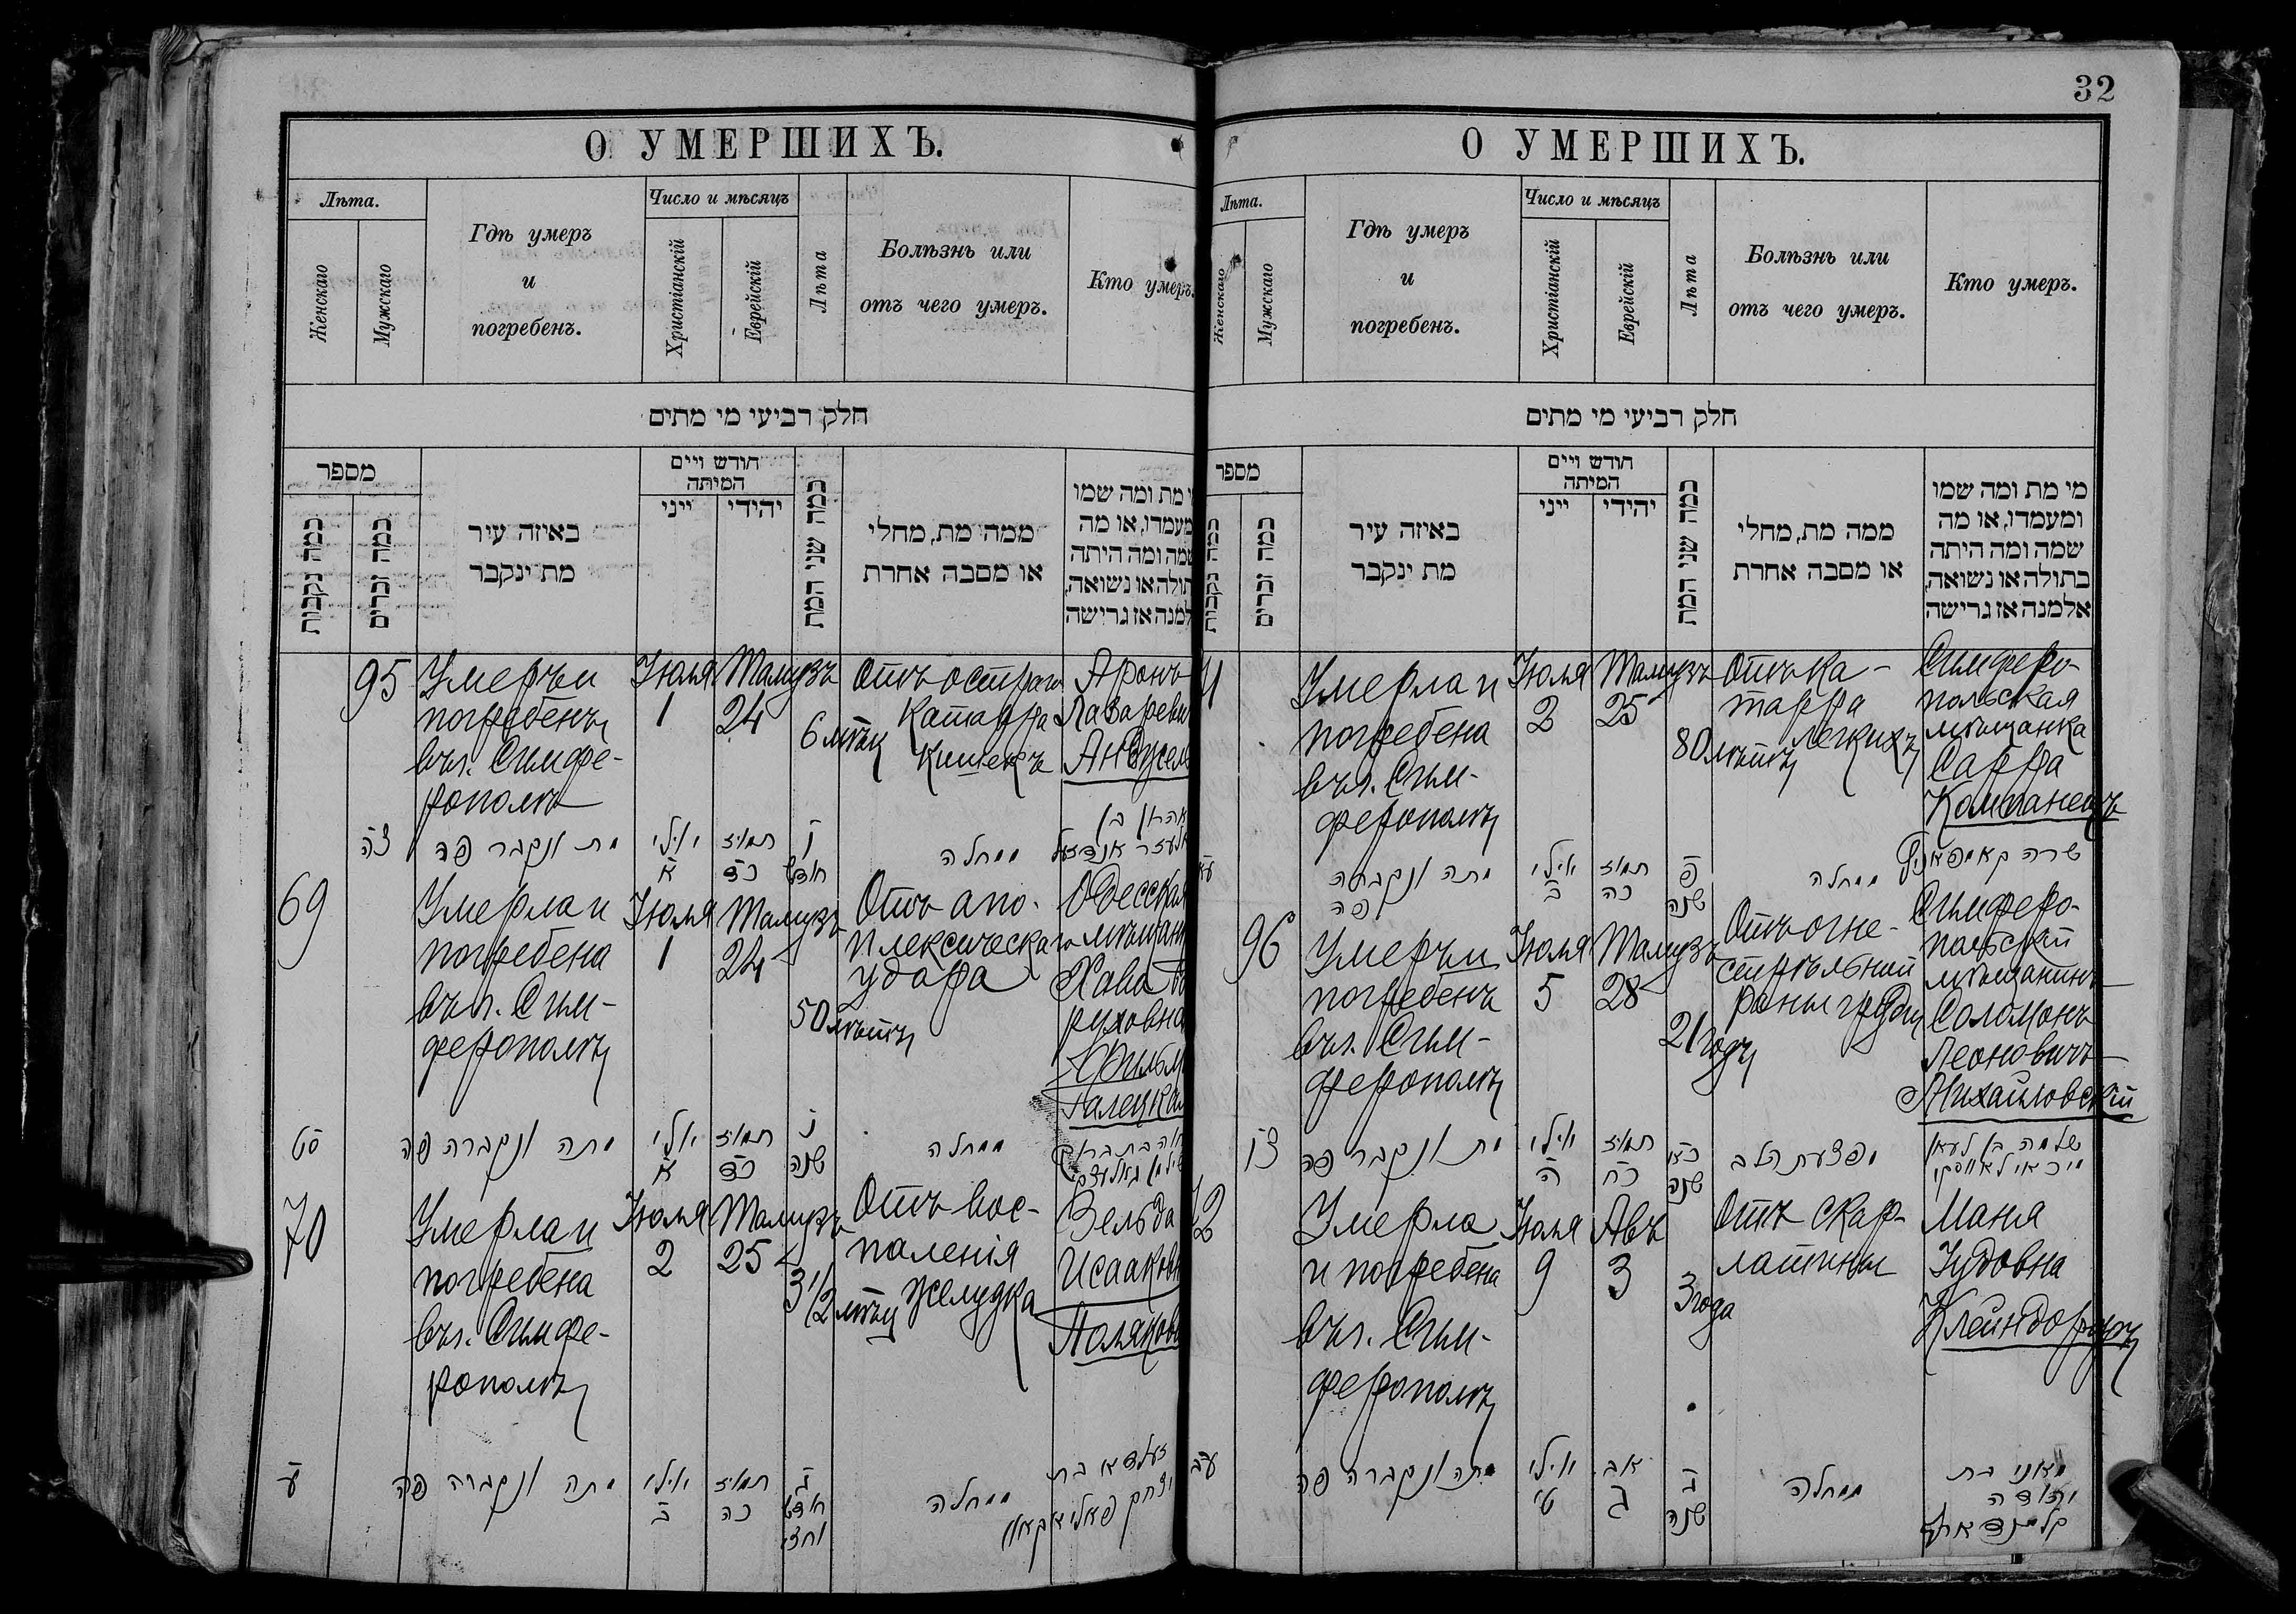 32
О УМЕРШИХЪ.
Лѣта.
Женскаго
Мужскаго
Гдѣ умеръ
и
погребенъ.
Число и мѣсяцъ
Христіанскій
Еврейскій
Лѣта
Болѣзнь или
отъ чего умеръ.
Кто умеръ.
חלק רביעי מי מתים
מספר
כמה נקבות
כמה זכרים
באיזה עיר
מת ינקבר
חודש ויים
המיתה
ייני
יהידי
כמה שני המת
ממה מת, מחלי
או מסבה אחרת
מי מת ומה שמו
ומעמדו, או מה
שמה ומה היתה
בתולה או נשואה,
אלמנה או גרישה
95
Умеръ и
погребенъ
въ г. Симфе-
рополѣ
Іюля
1
Тамузъ
24
6
Отъ остраго
катарра
кишекъ
Аронъ
Лазареви
צה
מת ונקבר פה
יולי
א
תמוז
כד
ו
ממחלה
אהרן בן
69
Умерла и
погребена
въ г. Сим-
ферополѣ
Іюля
1
Тамузъ
24
50 лѣтъ
Отъ апо-
плексическаго
удара
Одесская
мѣщанк
Хава Бо
руховна
סט
מתה ונקברה פה
יולי
א
תמוז
כד
נ
שנה
ממחלה
70
Умерла и
погребена
въ г. Симфе-
рополѣ
Іюля
2
Тамузъ
25
3 1/2
Отъ вос-
паленія
желудка
Зельда
Исааковн
Полякова
ע
מתה ונקברה פה
יולי
ב
תמוז
כה
ג
חדש
וחצי
ממחלה
זעלדא בת
יצחק פאליאקאוו
О УМЕРШИХЪ.
Лѣта.
Женскаго
Мужскаго
Гдѣ умеръ
и
погребенъ.
Число и мѣсяцъ
Христіанскій
Еврейскій
Лѣта
Болѣзнь или
отъ чего умеръ.
Кто умеръ.
חלק רביעי מי מתים
מספר
כמה נקבות
כמה זכרים
באיזה עיר
מת ינקבר
חודש ויים
המיתה
ייני
יהידי
כמה שני המת
ממה מת, מחלי
או מסבה אחרת
מי מת ומה שמו
ומעמדו, או מה
שמה ומה היתה
בתולה או נשואה,
אלמנה או גרישה
71
Умерла и
погребена
въ г. Сим-
ферополѣ
Іюля
2
Тамузъ
25
80 лѣтъ
Отъ ка-
тарра
легкихъ
Симферо-
польская
мѣщанка
Сарра
Компанеецъ
עא
מתה ונקברה
פה
יולי
ב
תמוז
כה
פ
שנה
ממחלה
שרה
96
Умеръ и
погребенъ
въ г. Сим-
ферополѣ
Іюля
5
Тамузъ
28
21 годъ
Отъ огне-
стрѣльной
раны груди
Симферо-
польскій
мѣщанинъ
Соломонъ
Леоновичъ
Михайловскій
צו
מת ונקבר פה
יולי
ה
תמוז
כח
כא
שנה
מפצעת הלב
שלמה בן לעאן
מיכאילאווסקי
72
Умерла
и погребена
въ г. Сим-
ферополѣ
Іюля
9
Авъ
3
3 года
Отъ скар-
латины
Маня
Іудовна
Клейндорфъ
עב
מתה ונקברה פה
יולי
ט
אב
ג
ג
שנה
ממחלה
מאני בת
יהודה